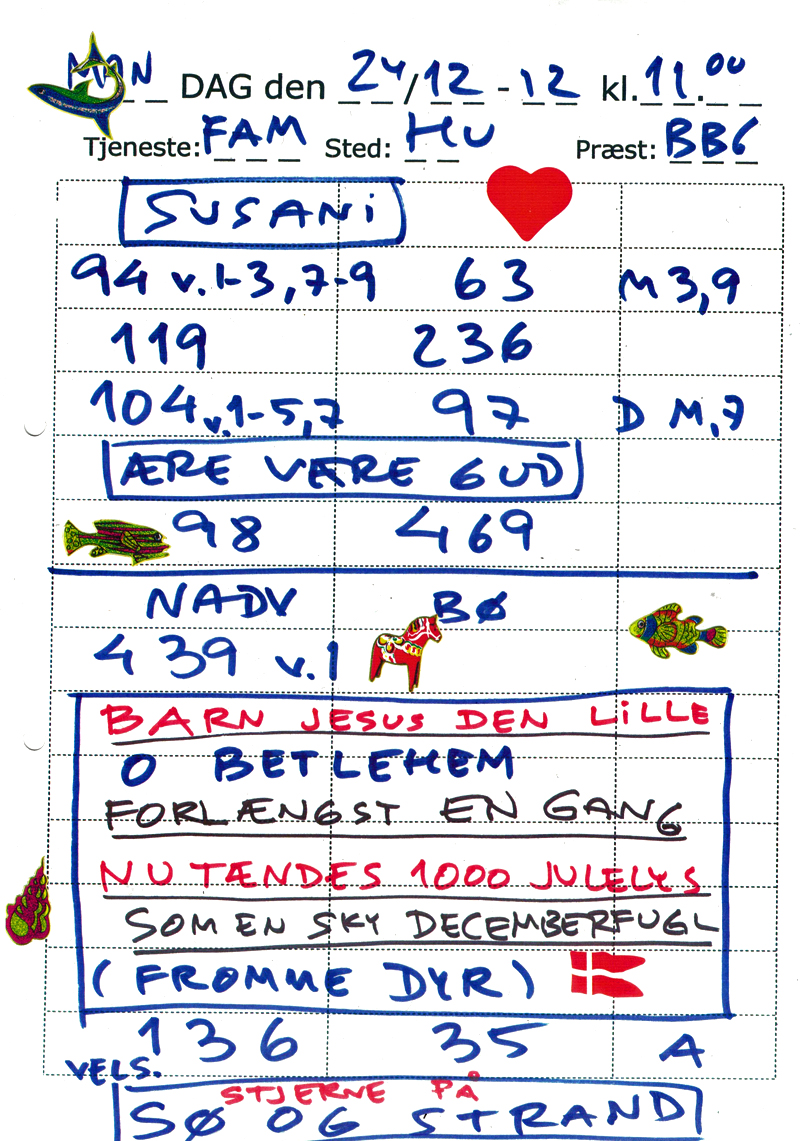 MAN DAG den 24/12 - 12 kl. 11.00
Tjeneste: FAM Sted: HU Præst: BBG
SUSANI
94 v.1-3,7-9 63 M 3,9
119 236
104 v.1-5,7 97 D M,7
ÆRE VÆRE GUD
98 469
NADV BØ
439 v.1
BARN JESUS DEN LILLE
O BETLEHEM
FORLÆNGST EN GANG
NU TÆNDES 1000 JULELYS
SOM EN SKY DECEMBERFUGL
(FROMME DYR)
136 35 A
VELS.
STJERNE PÅ
SØ OG STRAND